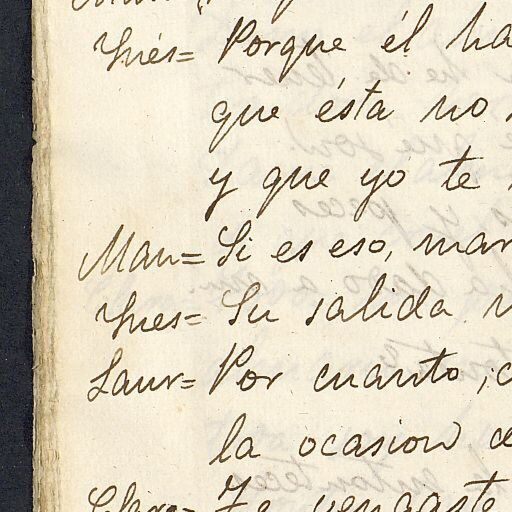 Ynés= Porque él ha
que ésta no
y que yo te
Man= Si es eso, mar
Ynes= Su salida
Laur= Por cuanto, c
la ocasion d
Clara= Te vengaste